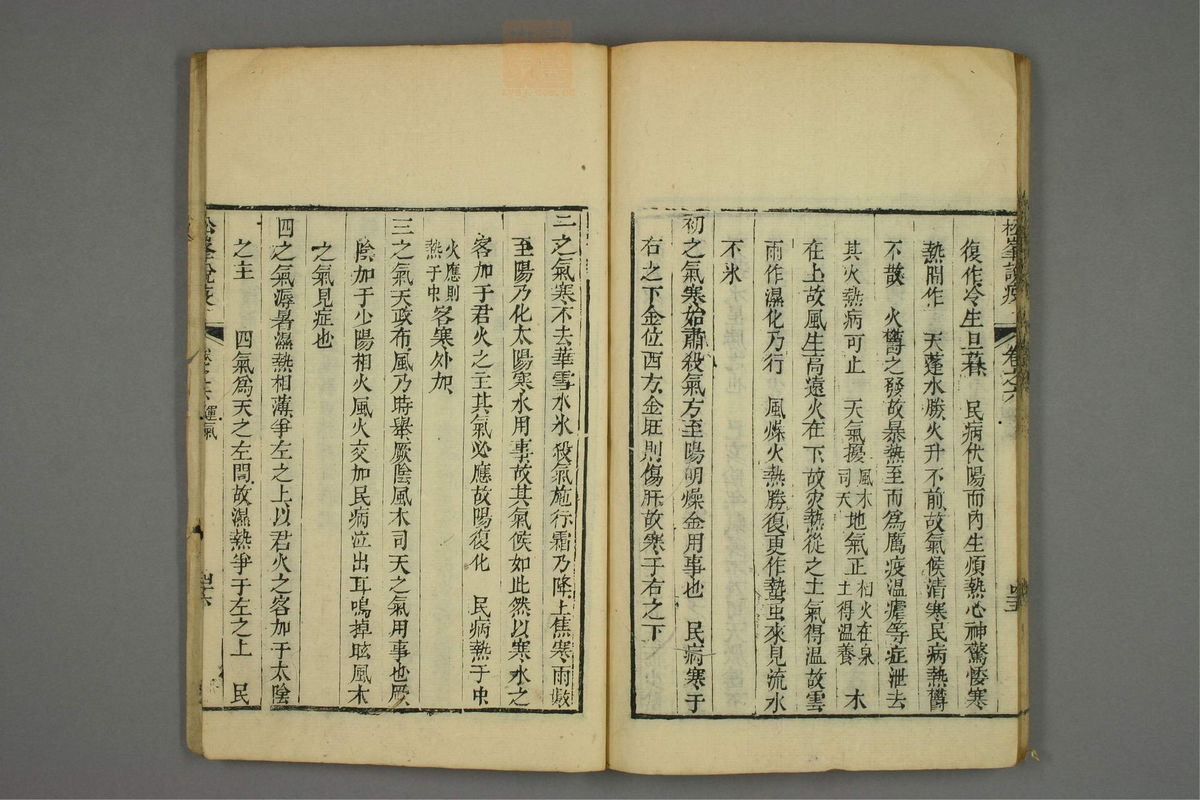 松峯說疫 卷之六 四五
復作冷生旦暮 民病伏陽而內生煩熱心神驚悸寒
熱間作 天蓬水勝火升不前故氣候清寒民病熱鬱
不散 火鬱之發故暴熱至而爲厲疫溫瘧等症泄去
其火熱病可止 天氣擾風木司天地氣正相火在泉土得溫養 木
在上故風生高遠火在下故炎熱從之土氣得溫故雲
雨作濕化乃行 風燥火熱勝復更作蟄虫來見流水
不氷
初之氣寒始肅殺氣方至陽明燥金用事也 民病寒于
右之下金位西方金旺則傷肝故寒于右之下
二之氣寒不去華雪水氷殺氣施行霜乃降上焦寒雨數
至陽乃化太陽寒水用事故其氣候如此然以寒水之
客加于君火之主其氣必應故陽復化 民病熱于中
火應則熱于中客寒外加
三之氣天政布風乃時舉厥陰風木司天之氣用事也厥
陰加于少陽相火風火交加民病泣出耳鳴掉眩風木
之氣見症也
四之氣溽暑濕熱相薄爭左之上以君火之客加于太陰
之主 四氣爲天之左間故濕熱爭于左之上 民
松峯說疫 卷之六 運氣 四六